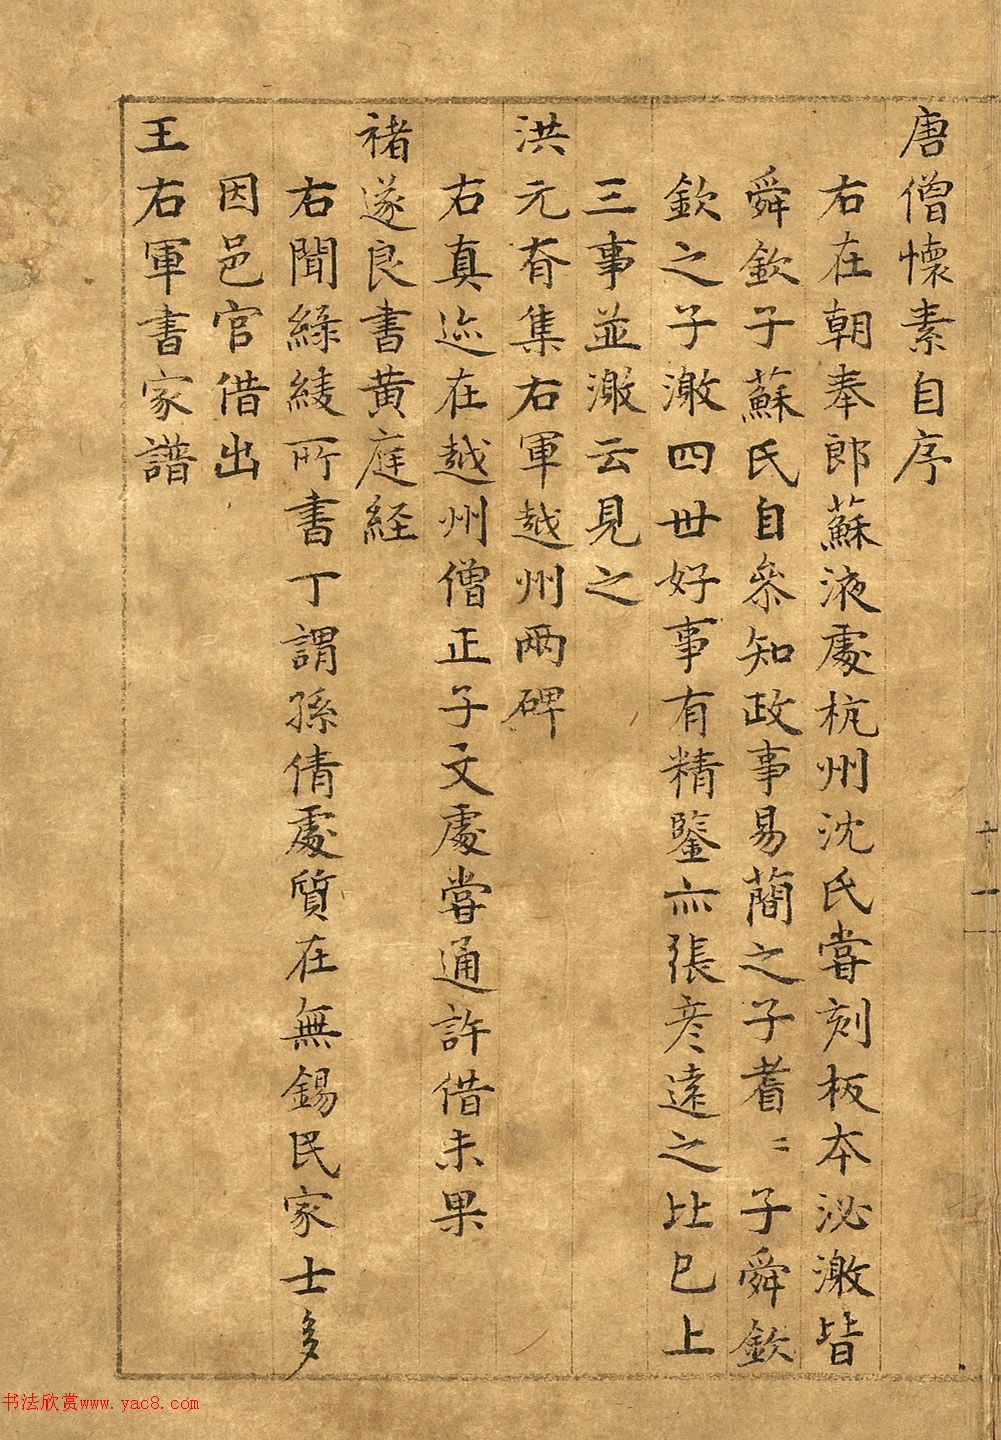 唐僧懷素自序
右在朝奉郎蘇液處杭州沈氏嘗刻板本泌澂皆
舜欽子蘇氏自叅知政事易蕳之子耆〻子舜欽
欽之子澂四世好事有精鑒亦張彥遠之比已上
三事並澂云見之
洪元眘集右軍越州兩碑
右真迹在越州僧正子文處嘗通許借未果
褚遂良書黃庭経
右聞綠綾所書丁謂孫倩處質在無錫民家士多
因邑官借出
王右軍書家譜
十一
书法欣赏www.yac8.com